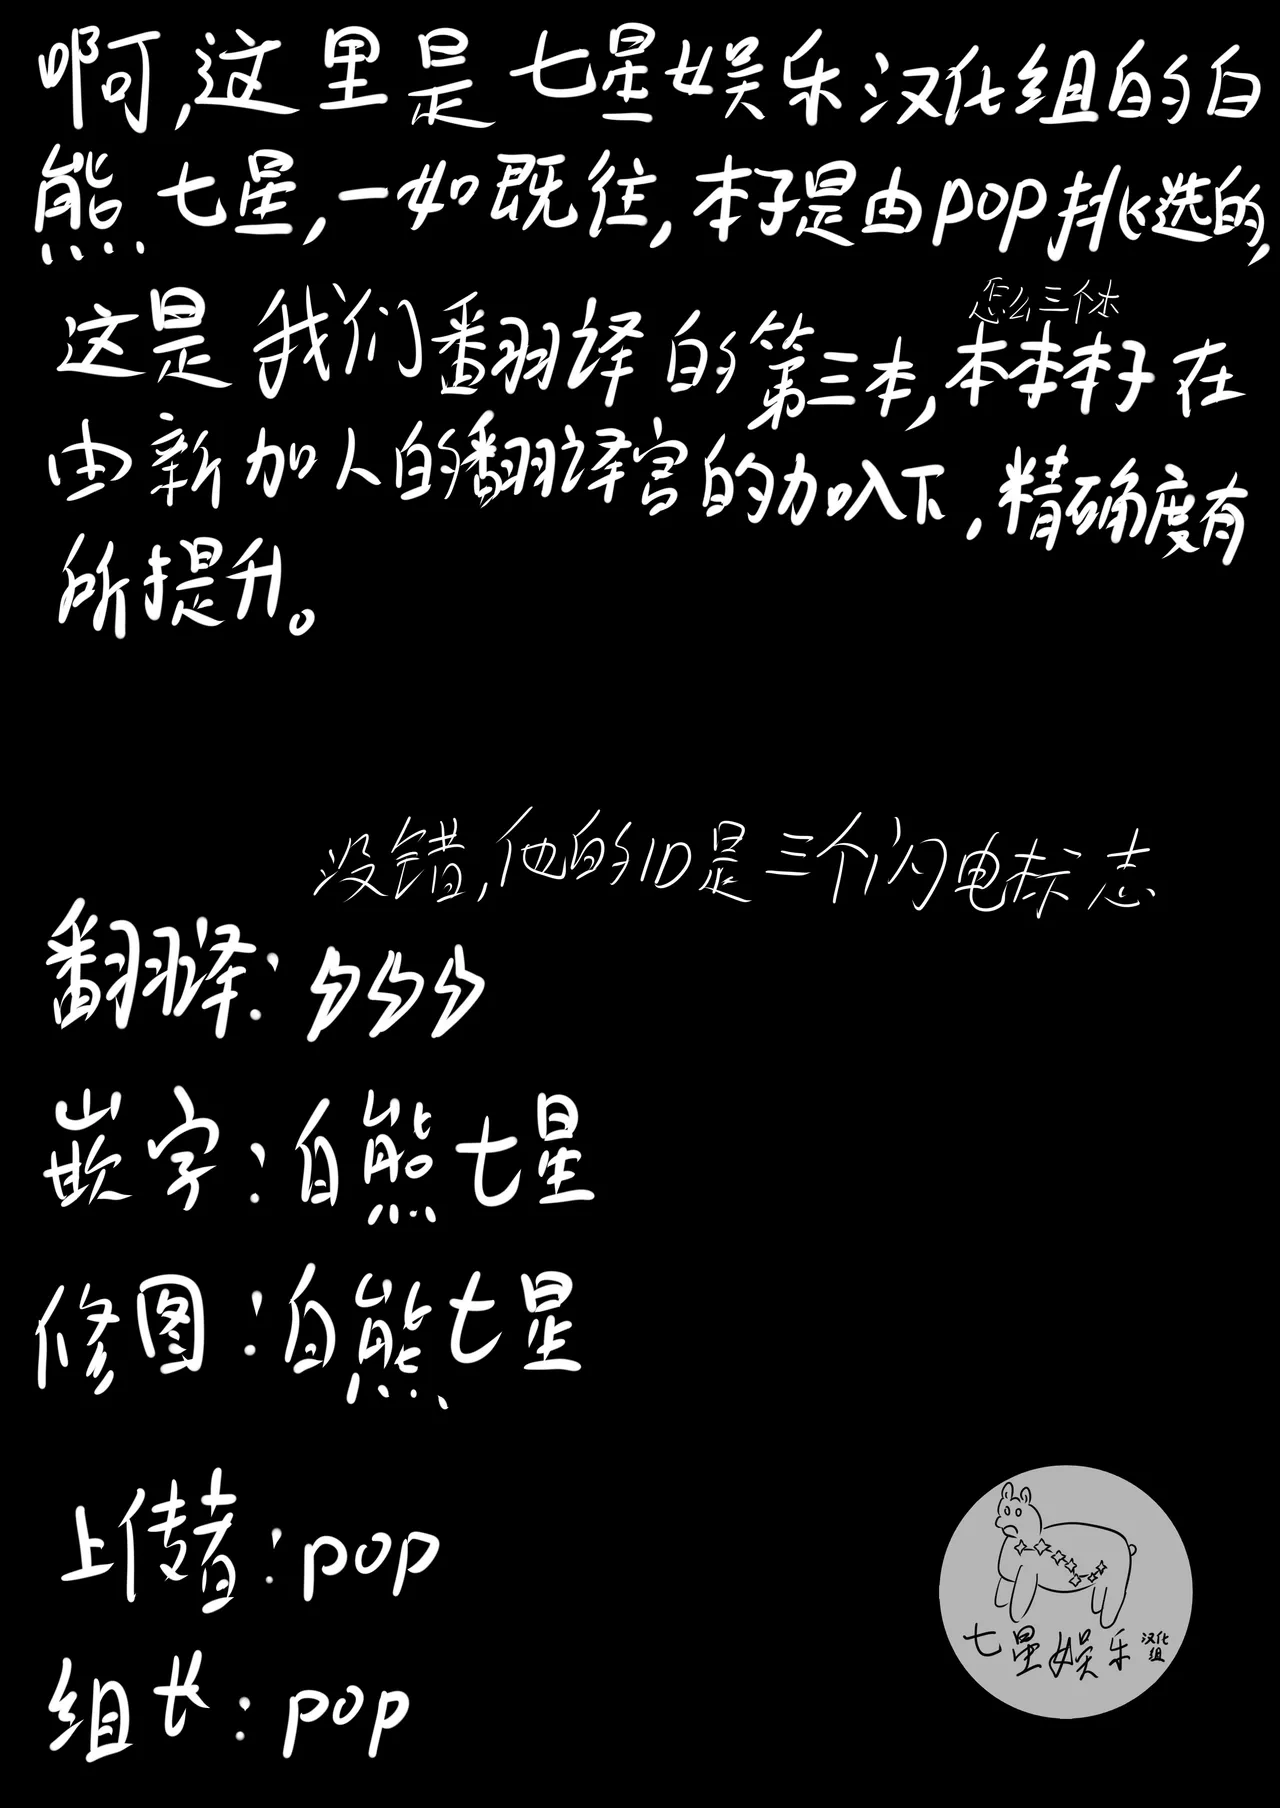 啊,这里是七星娱乐汉化组的白
熊七星,一如既往,本子是由pop挑选的,
怎么三个本
这是我们翻译的第三本,本本本子在
由新加人的翻译官的加入下,精确度有
所提升。
没错,他的ID是三个闪电标志
翻译:⚡⚡⚡
嵌字:白熊七星
修图:白熊七星
上传者:pop
组长:pop
七星娱乐汉化组